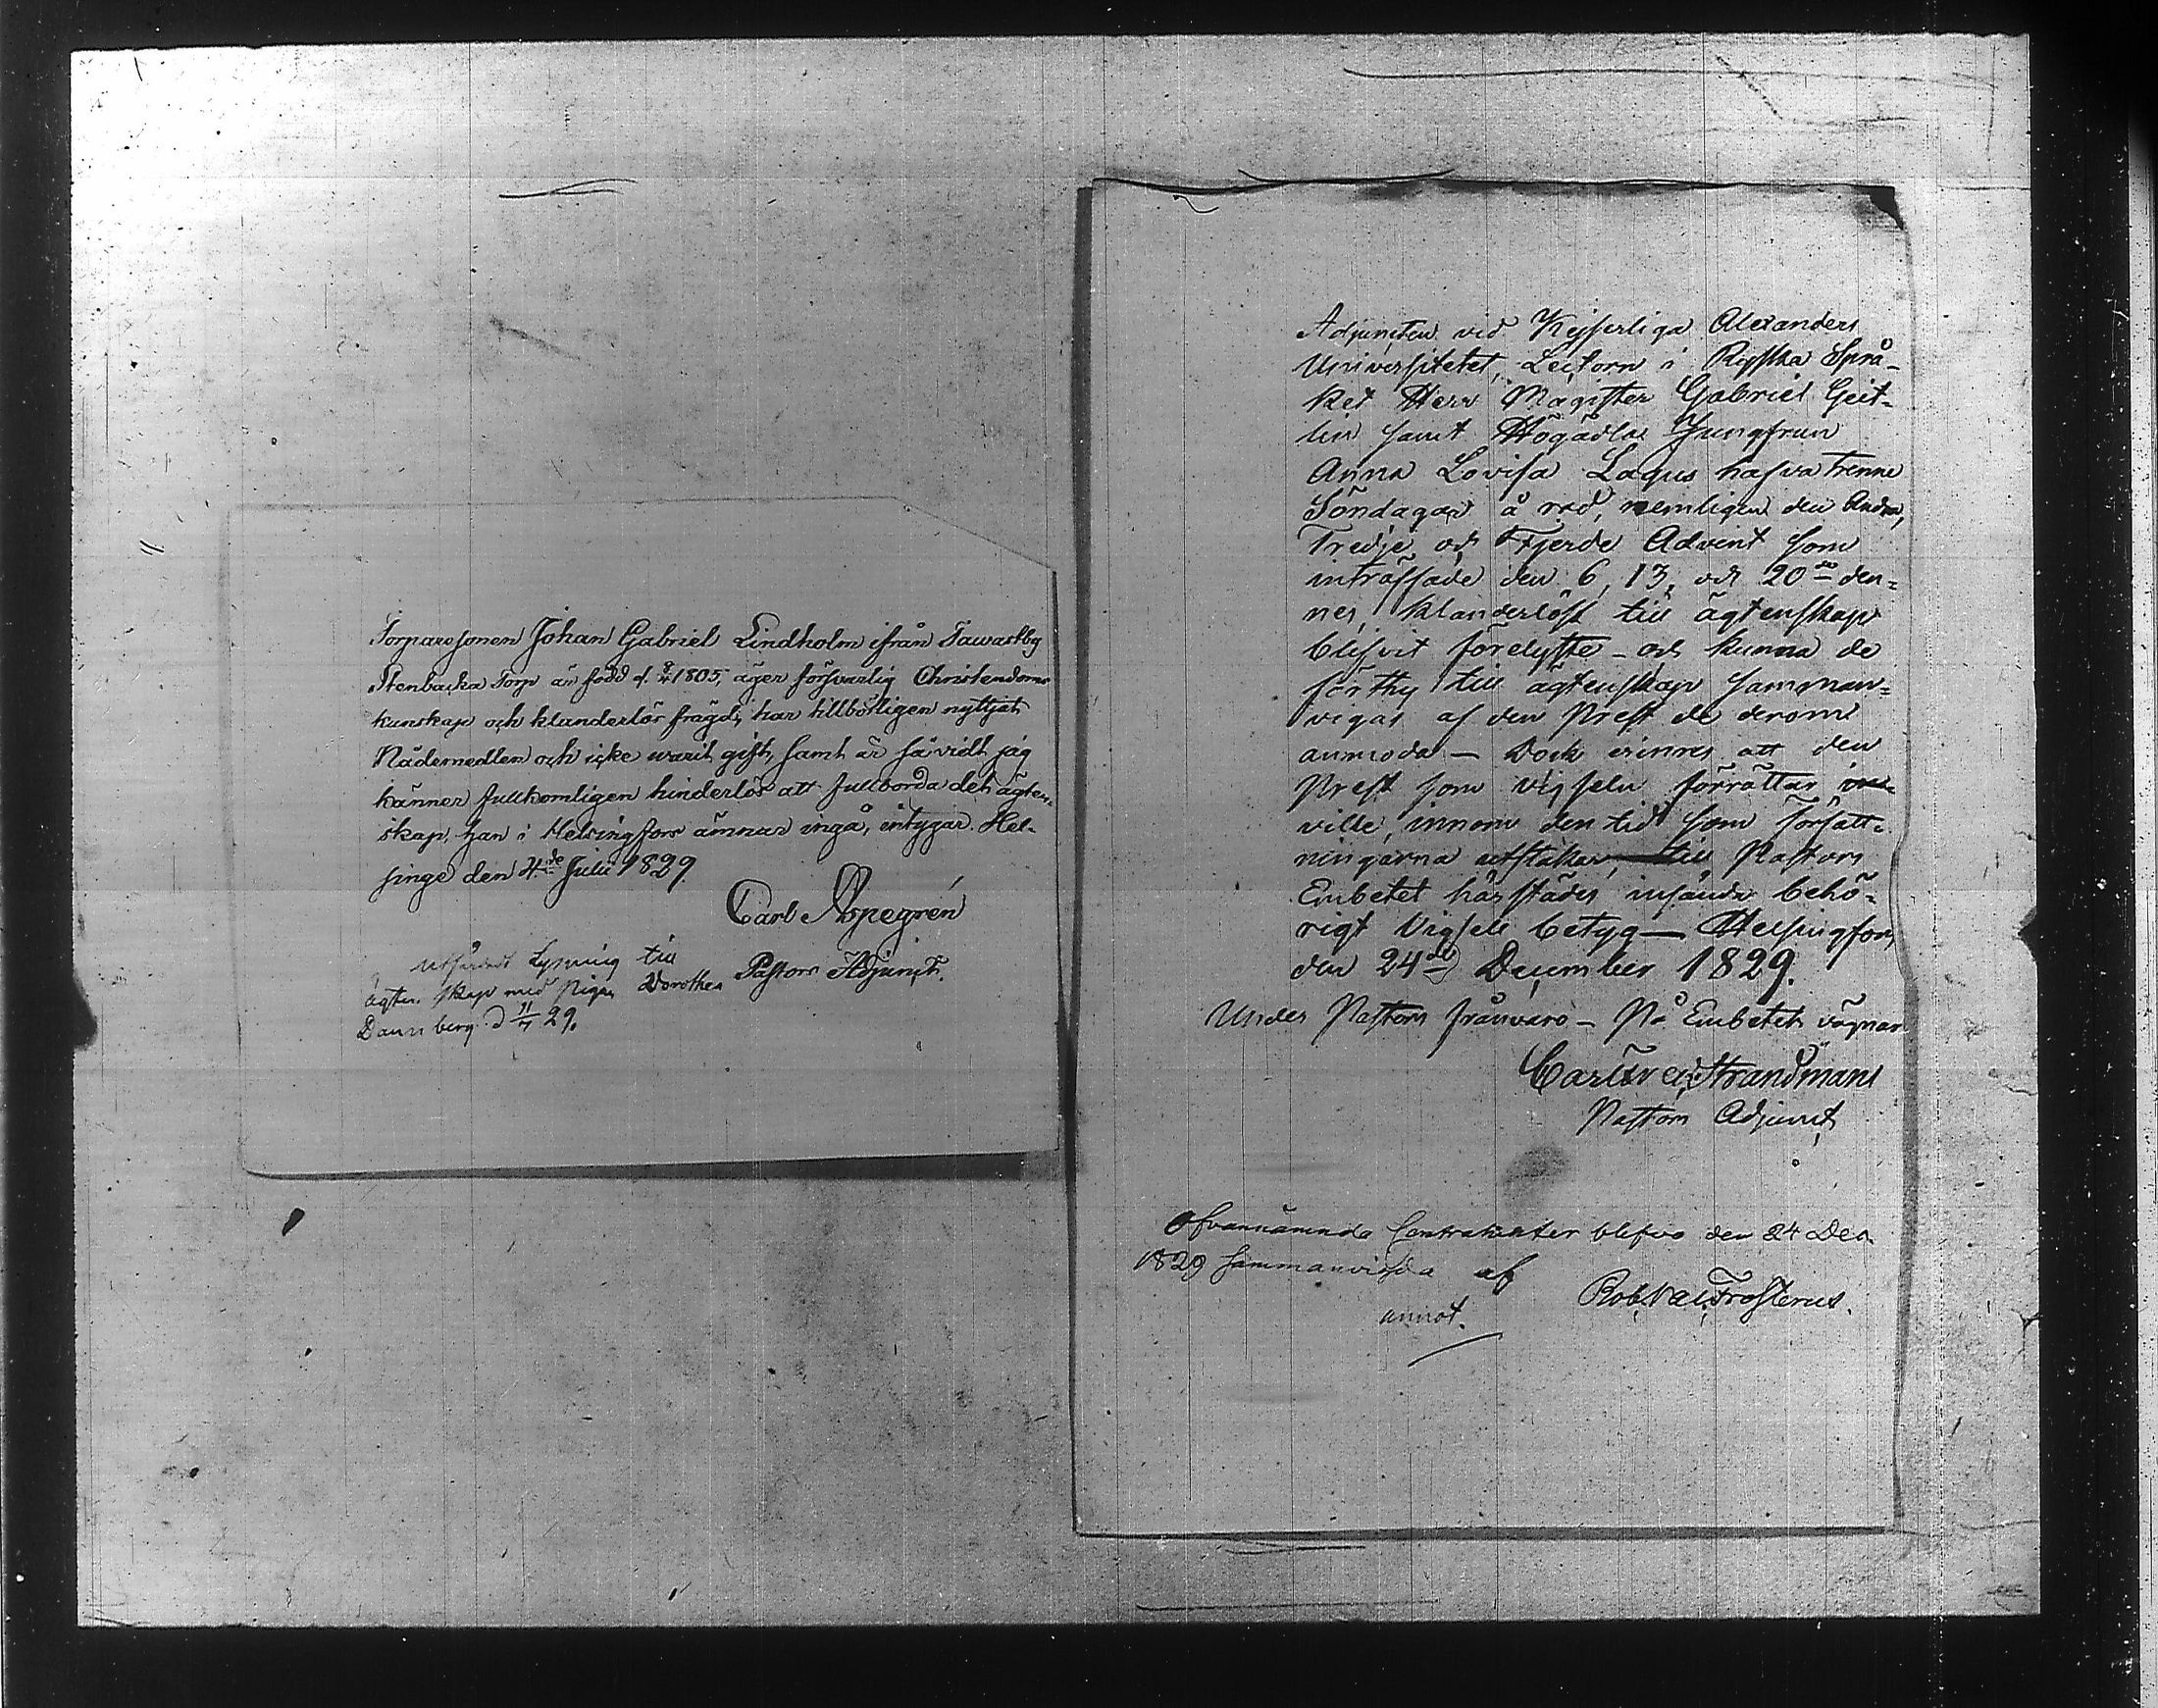 Torparesonen Johan Gabriel Lindholm ifrån Tawastby
Stenbacka Torp är född d. 1805, äger försvarlig Christendoms
kunskap och klanderlös frägd, har tillbörligen nyttjat
Nådemedlen och icke warit gift, samt är så vidt jag
känner fullkomligen hinderlös att fullborda det ägten-
skap, han i Helsingfors ämnar ingå, intygar. Hel-
singe den 4de Julii 1829.
Carl Aspegrén
Pastors Adjunct.
utfärdadt Lysning till
ägtenskap med Pigan Dorothea
Dannberg d 11/7 29.
Adjuncten vid Kejserliga Alexanders
Universitetet, Lectorn i Ryska Språ-
ket Herr Magister Gabriel Geit-
lin samt Högädla Jungfrun
Anna Lovisa Lagus hafva trenne
Söndagar å rad, nemligen den Andra,
Tredje och Fjerde Advent som
inträffade den 6, 13, och 20de den-
nes, klanderlöst till ägtenskap
blifvit förelyste - och kunna de
förthy till ägtenskap samman-
vigas af den Prest de derom
anmoda — Dock erinras att den
Prest som vigseln förrättar
ville, innom den tid som författ-
ningarna utstakar, till Pastors
Embetet härstädes insända behö-
rigt Vigsele betyg — Helsingfors
den 24de December 1829.
Under Pastors frånvaro - På Embetets vägnar
Carl Strandman
Pastors Adjunct
Ofvannämnda Contrahenter blefvo den 24 Dec.
1829 sammanvigda af
Rob. Val. Frosterus.
annot.